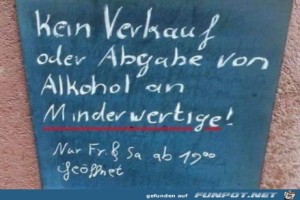 Kein Verkauf
oder Abgabe von
Alkohol an
Minderwertige!
Nur Fr. & Sa ab 19oo
geöffnet
gefunden auf FUNPOT.NET